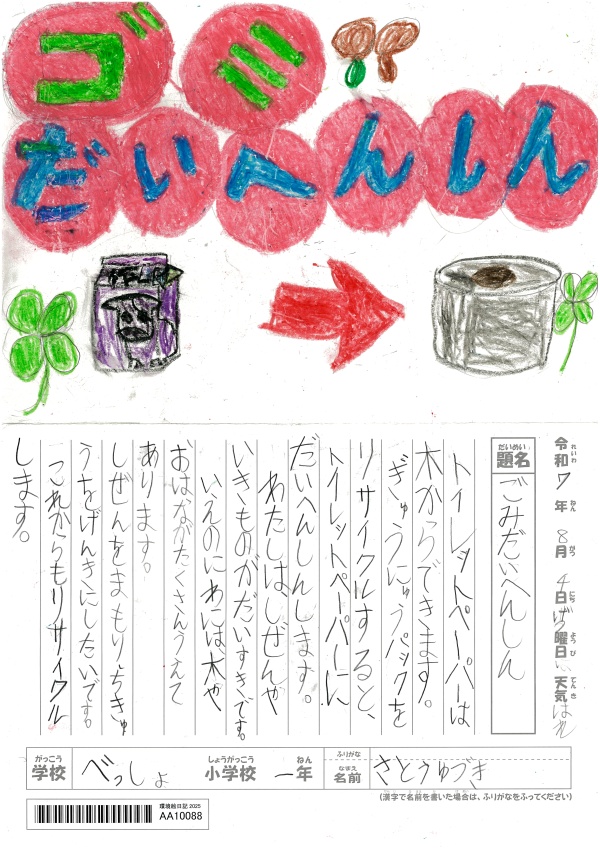 ゴミ
だいへんしん
令和7年8月4日げつ曜日 天気はれ
れいわ ねん がつ にち ようび てんき
だいめい
題名
ごみだいへんしん
トイレットペーパーは
木からできます。
ぎゅうにゅうパックを
リサイクルすると、
トイレットペーパーに
だいへんしんします。
わたしはしぜんや
いきものがだいすきです。
いえのにわには木や
おはながたくさんうえて
あります。
しぜんをまもりちきゅ
うをげんきにしたいです。
これからもリサイクル
します。
がっこう
学校
べっしょ
しょうがっこう
小学校
一
ねん
年
ふりがな
なまえ
名前
さとうゆづき
(漢字で名前を書いた場合は、ふりがなをふってください)
環境絵日記 2025
AA10088